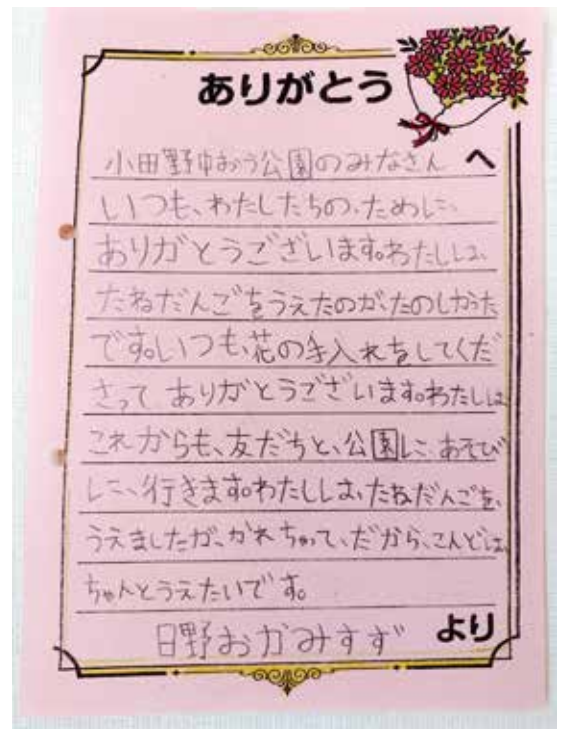 ありがとう
小田野中おう公園のみなさん へ
いつも、わたしたちの、ために、
ありがとうございます。わたしは、
たねだんごをうえたのが、たのしかった
です。いつも、花の手入れをしてくだ
さって ありがとうございます。わたしは
これからも、友だちと、公園に、あそび
に、行きます。わたしは、たねだんごを、
うえましたが、かれちゃって、だから、こんどは、
ちゃんとうえたいです。
日野おかみすず より